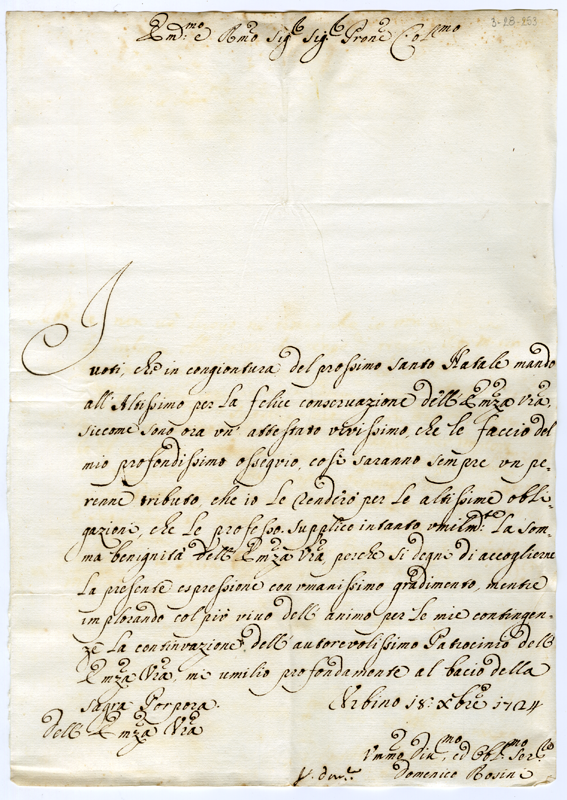 3-28-253
Em.mo e R.mo Sig.r Sig.r Pron.e Col.mo
I voti, che in congiontura del prossimo santo Natale mando
all'Altissimo per la felice conservazione dell'Em.za V.ra,
siccome sono ora vn' attestato vivissimo, che le faccio del
mio profondissimo ossequio, così saranno sempre vn pe-
renne tributo, che io Le renderò per Le altissime obli-
gazioni, che Le professo. Supplico intanto vmilm.te La som-
ma benignità dell'Em.za V.ra, perche si degni di accoglierne
La presente espressione con vmanissimo gradimento, mentre
implorando col più vivo dell'animo per Le mie contingen-
ze La continvazione dell'autorevolissimo Patrocinio dell'
Em.za V.ra, mi umilio profondamente al bacio della
sagra Porpora.
Vrbino 18: Xbre 1724
Dell'Em.za V.ra
Vmmo Div.mo, ed Obl.mo Ser.re
Domenico Rosini